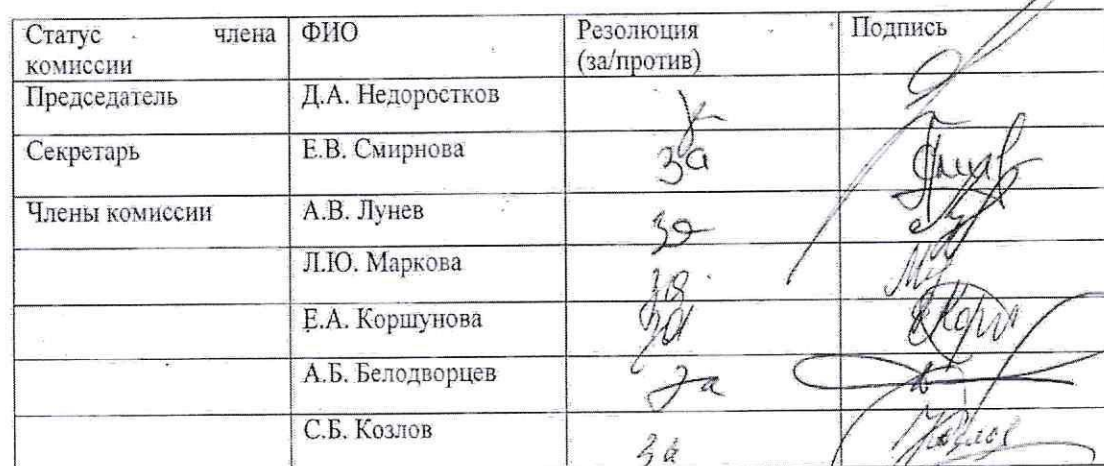 Статус члена ФИО Резолюция Подпись
комиссии (за/против)
Председатель Д.А. Недоростков
Секретарь Е.В. Смирнова за
Члены комиссии А.В. Лунев за
Л.Ю. Маркова за
Е.А. Коршунова за
А.Б. Белодворцев за
С.Б. Козлов за